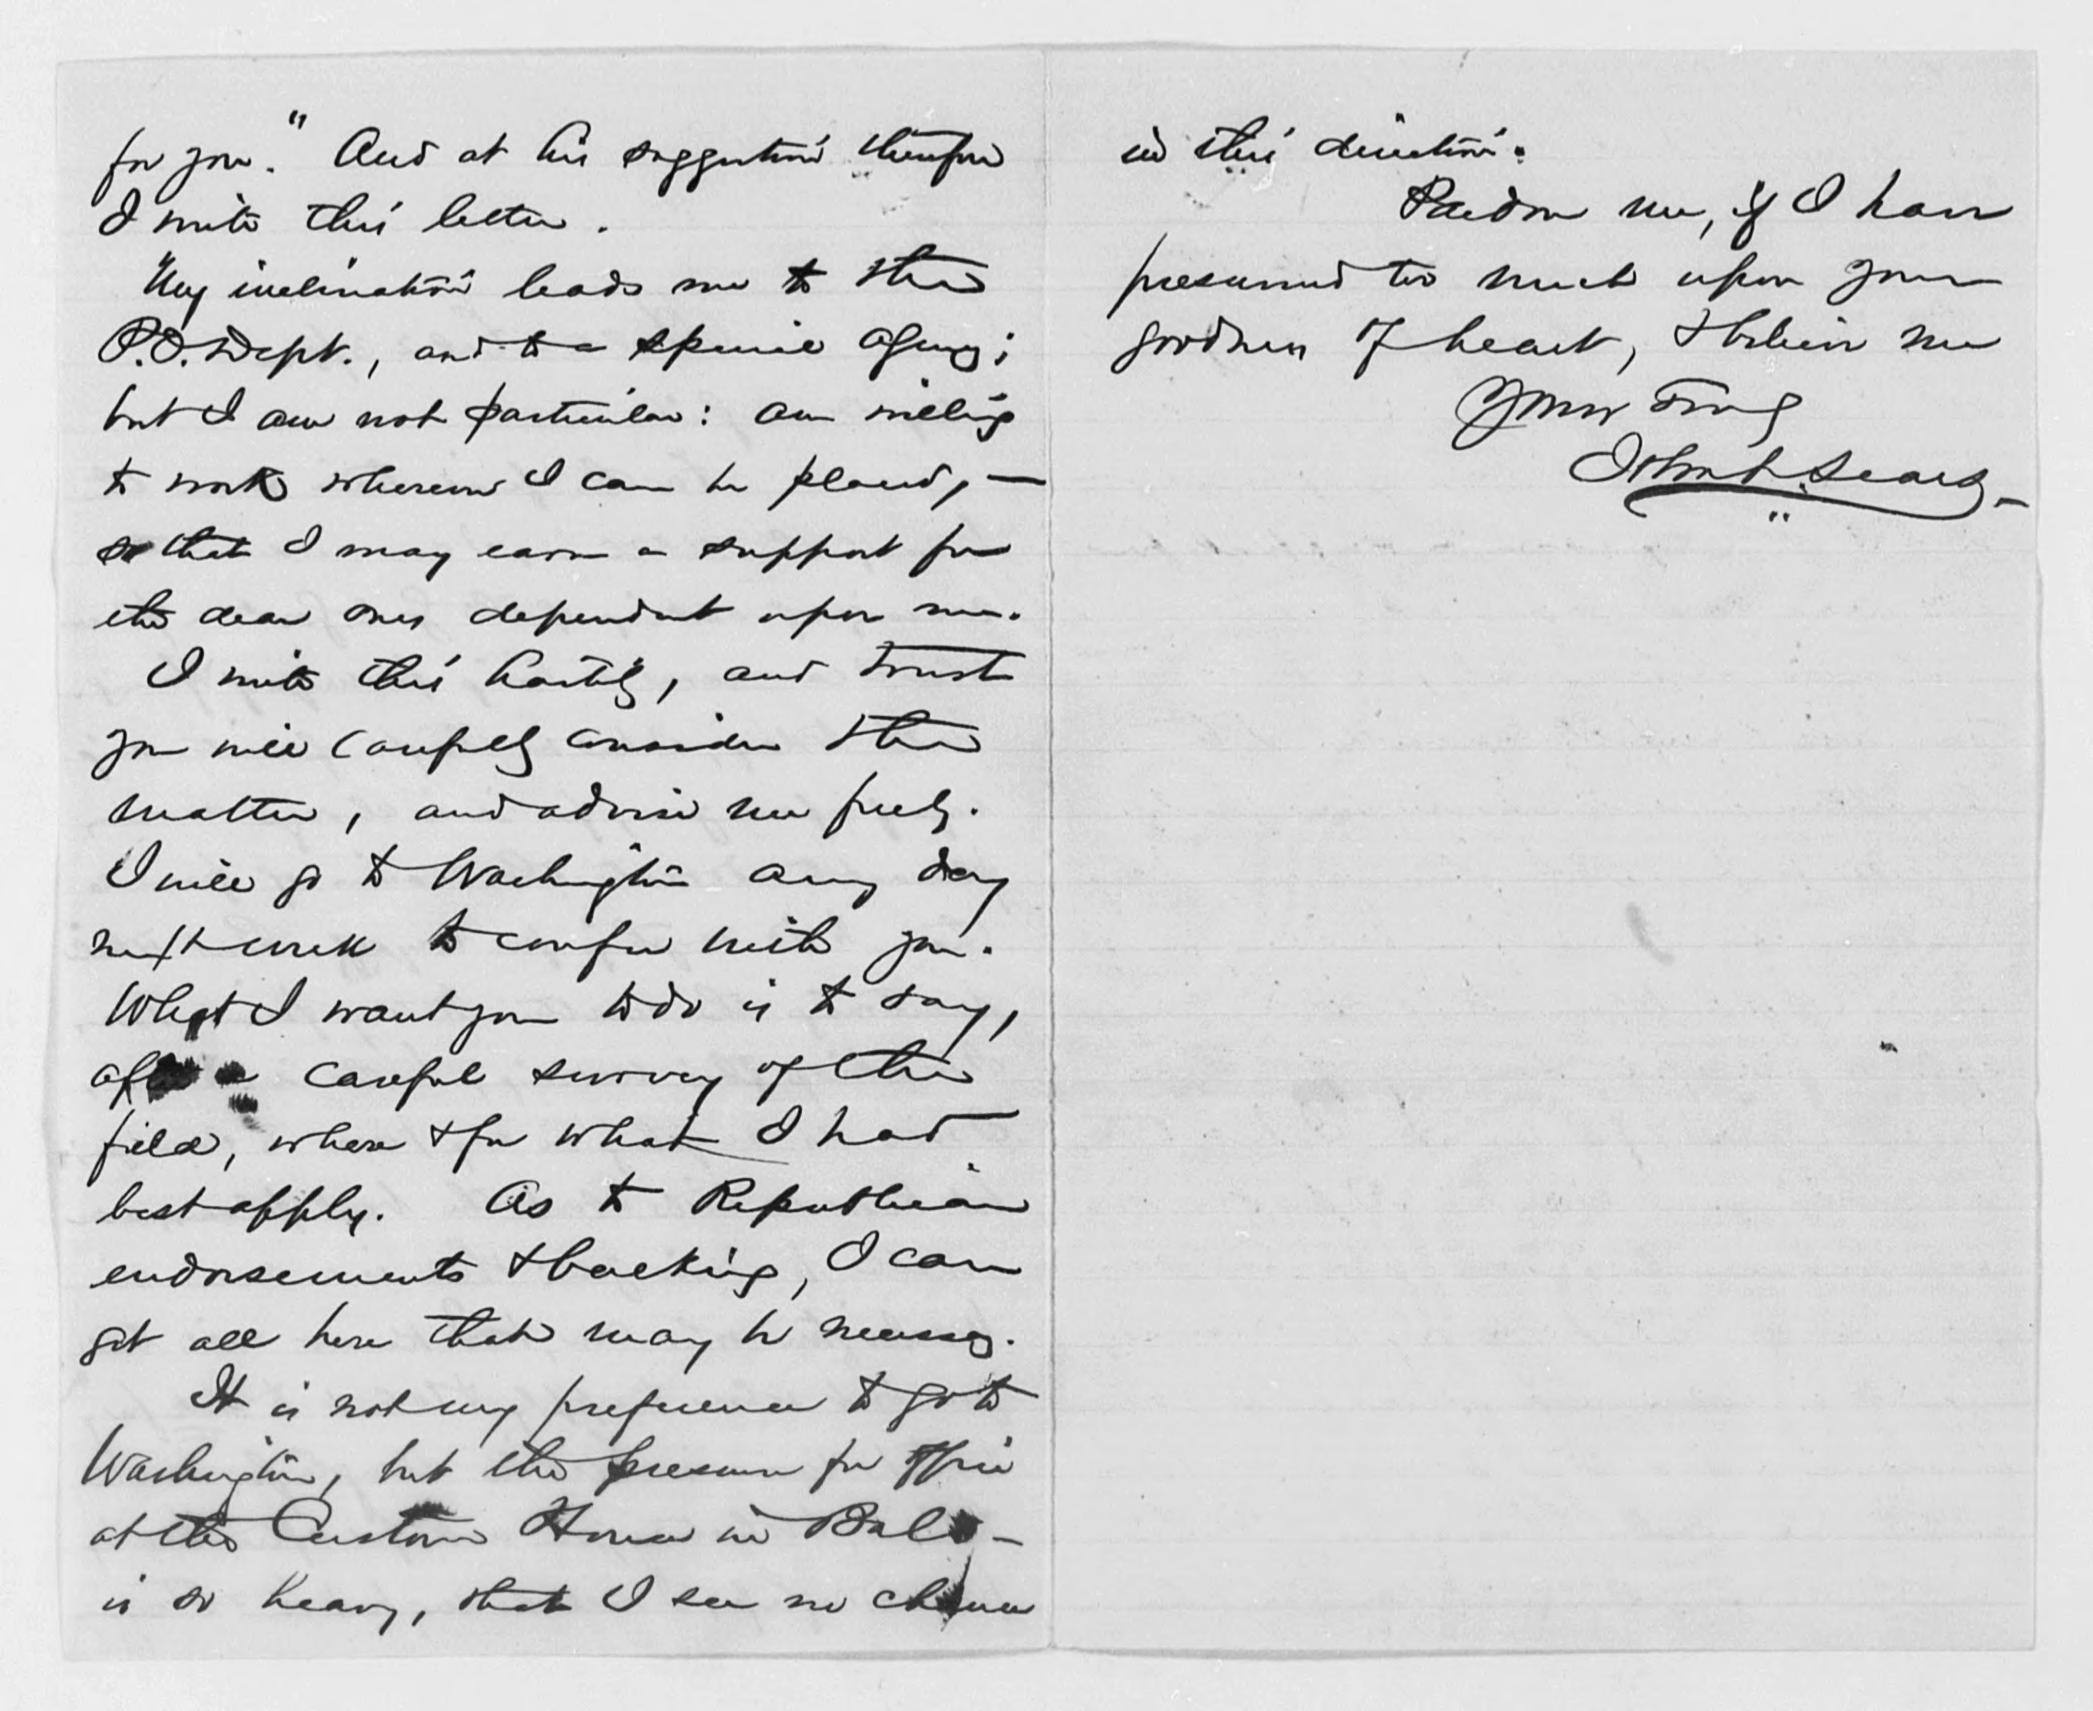 for you." And at his suggestion therefore
I write this letter.
My inclination leads me to the
P.O. Dept., and to a special agency;
but I am not particular: am willing
to work wherever I can be placed, —
so that I may earn a support for
the dear ones dependent upon me.
I write this hastily, and trust
you will carefully consider the
matter, and advise me freely.
I will go to Washington any day
next week to confer with you.
What I want you to do is to say,
after a careful survey of the
field, where & for what I had
best apply. As to Republican
endorsements & backing, I can
get all here that may be necessary.
It is not my preference to go to
Washington, but the pressure for office
at the Custom House in Balto-
is so heavy, that I see no chance
in this direction.
Pardon me, if I have
presumed too much upon your
goodness of heart, & believe me
Yours Truly
John L. Sears